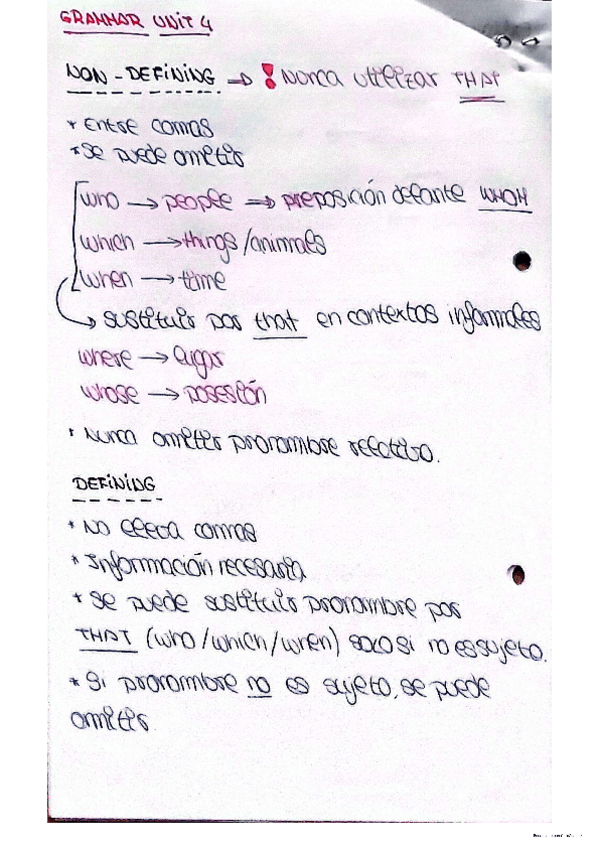 GRAMMAR UNIT 4
NON-DEFINING → ! NUNCA UTILIZAR THAT
* Entre comas
* Se puede omitir
who → people ⇒ preposición delante WHOM
which → things/animales
when → time
→ sustituir por that en contextos informales
where → lugar
whose → posesión
* Nunca omitir pronombre relativo.
DEFINING
* No lleva comas
* Información necesaria
* Se puede sustituir pronombre por
THAT (who/which/when) solo si no es sujeto.
* Si pronombre no es sujeto, se puede
omitir.